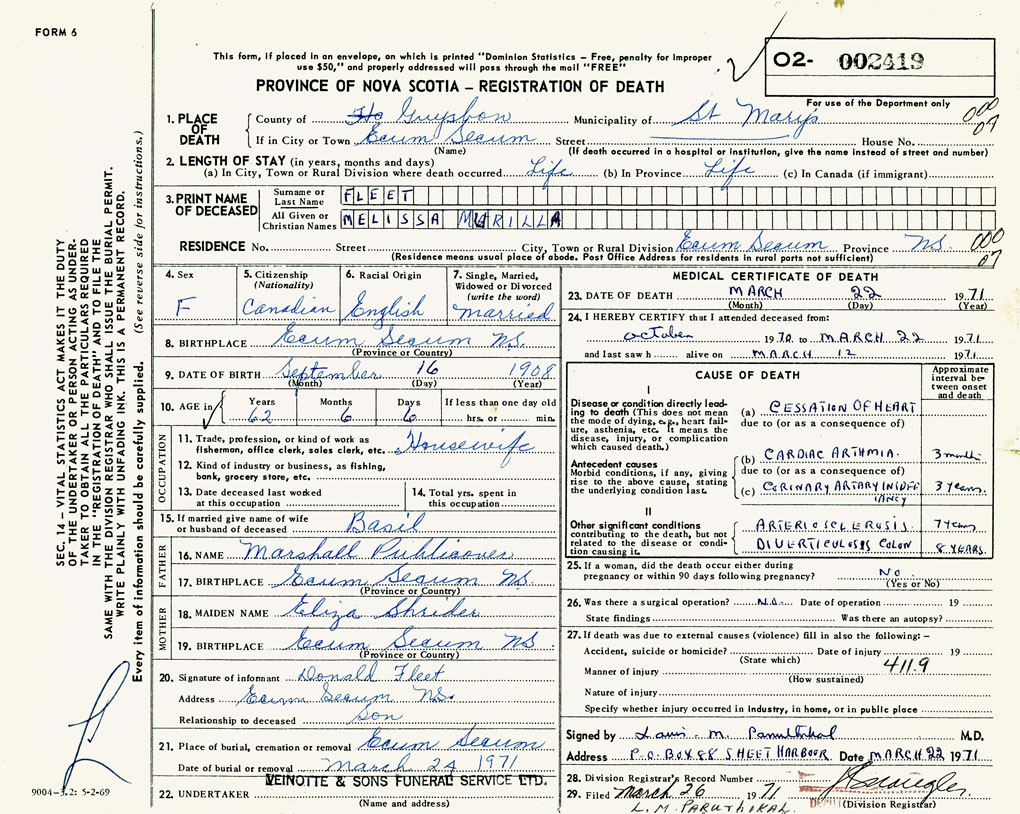 FORM 6
This form, if placed in an envelope, on which is printed "Dominion Statistics – Free, penalty for improper
use $50," and properly addressed will pass through the mail "FREE"
O2- 002419
PROVINCE OF NOVA SCOTIA – REGISTRATION OF DEATH
For use of the Department only
1. PLACE OF DEATH
County of Guysboro Municipality of St Mary's
If in City or Town Ecum Secum Street House No.
(Name) (If death occurred in a hospital or institution, give the name instead of street and number)
2. LENGTH OF STAY (in years, months and days)
(a) In City, Town or Rural Division where death occurred Life (b) In Province Life (c) In Canada (if immigrant)
3. PRINT NAME OF DECEASED
Surname or Last Name FLEET
All Given or Christian Names MELISSA MURILLA
RESIDENCE No. Street City, Town or Rural Division Ecum Secum Province NS
(Residence means usual place of abode. Post Office Address for residents in rural parts not sufficient)
4. Sex F
5. Citizenship (Nationality) Canadian
6. Racial Origin English
7. Single, Married, Widowed or Divorced (write the word) Married
8. BIRTHPLACE Ecum Secum NS.
(Province or Country)
9. DATE OF BIRTH September 16 1908
(Month) (Day) (Year)
10. AGE in Years 62 Months 6 Days 6 If less than one day old hrs. or min.
OCCUPATION
11. Trade, profession, or kind of work as
fisherman, office clerk, sales clerk, etc. Housewife
12. Kind of industry or business, as fishing,
bank, grocery store, etc.
13. Date deceased last worked at this occupation
14. Total yrs. spent in this occupation
15. If married give name of wife
or husband of deceased Basil
FATHER
16. NAME Marshall Publicover
17. BIRTHPLACE Ecum Secum NS.
(Province or Country)
MOTHER
18. MAIDEN NAME Eliza Shrider
19. BIRTHPLACE Ecum Secum NS
(Province or Country)
20. Signature of informant Donald Fleet
Address Ecum Secum NS.
Relationship to deceased son
21. Place of burial, cremation or removal Ecum Secum
Date of burial or removal March 24 1971
VEINOTTE & SONS FUNERAL SERVICE LTD.
22. UNDERTAKER
(Name and address)
MEDICAL CERTIFICATE OF DEATH
23. DATE OF DEATH MARCH 22 1971
(Month) (Day) (Year)
24. I HEREBY CERTIFY that I attended deceased from:
October 1970 to MARCH 22 1971
and last saw h alive on MARCH 12 1971
CAUSE OF DEATH
Approximate interval between onset and death
I
Disease or condition directly leading to death (This does not mean the mode of dying, e.g., heart failure, asthenia, etc. It means the disease, injury, or complication which caused death.)
(a) CESSATION OF HEART
due to (or as a consequence of)
Antecedent causes
Morbid conditions, if any, giving rise to the above cause, stating the underlying condition last.
(b) CARDIAC ARTHMIA. 3 months
due to (or as a consequence of)
(c) CORINARY ARTARY INSUFFI
IANCY 3 years.
II
Other significant conditions contributing to the death, but not related to the disease or condition causing it.
ARTERIOSCLEROSIS. 7 years
DIVERTICULOSIS COLON 8 YEARS.
25. If a woman, did the death occur either during
pregnancy or within 90 days following pregnancy? No
(Yes or No)
26. Was there a surgical operation? No. Date of operation 19
State findings Was there an autopsy?
27. If death was due to external causes (violence) fill in also the following: –
Accident, suicide or homicide? Date of injury 19
(State which)
411.9
Manner of injury
(How sustained)
Nature of injury
Specify whether injury occurred in industry, in home, or in public place
Signed by M. Paruthikal M.D.
Address P.O. BOX 88 SHEET HARBOUR Date MARCH 22 1971
28. Division Registrar's Record Number
29. Filed March 26 1971
(Division Registrar)
L. M. PARUTHIKAL
SEC. 14 – VITAL STATISTICS ACT MAKES IT THE DUTY
OF THE UNDERTAKER OR PERSON ACTING AS UNDER-
TAKER TO OBTAIN ALL THE PARTICULARS REQUIRED
IN THE "REGISTRATION OF DEATH" AND TO FILE THE
SAME WITH THE DIVISION REGISTRAR WHO SHALL ISSUE THE BURIAL PERMIT.
WRITE PLAINLY WITH UNFADING INK. THIS IS A PERMANENT RECORD.
Every item of information should be carefully supplied. (See reverse side for instructions.)
9004-3.2: 5-2-69